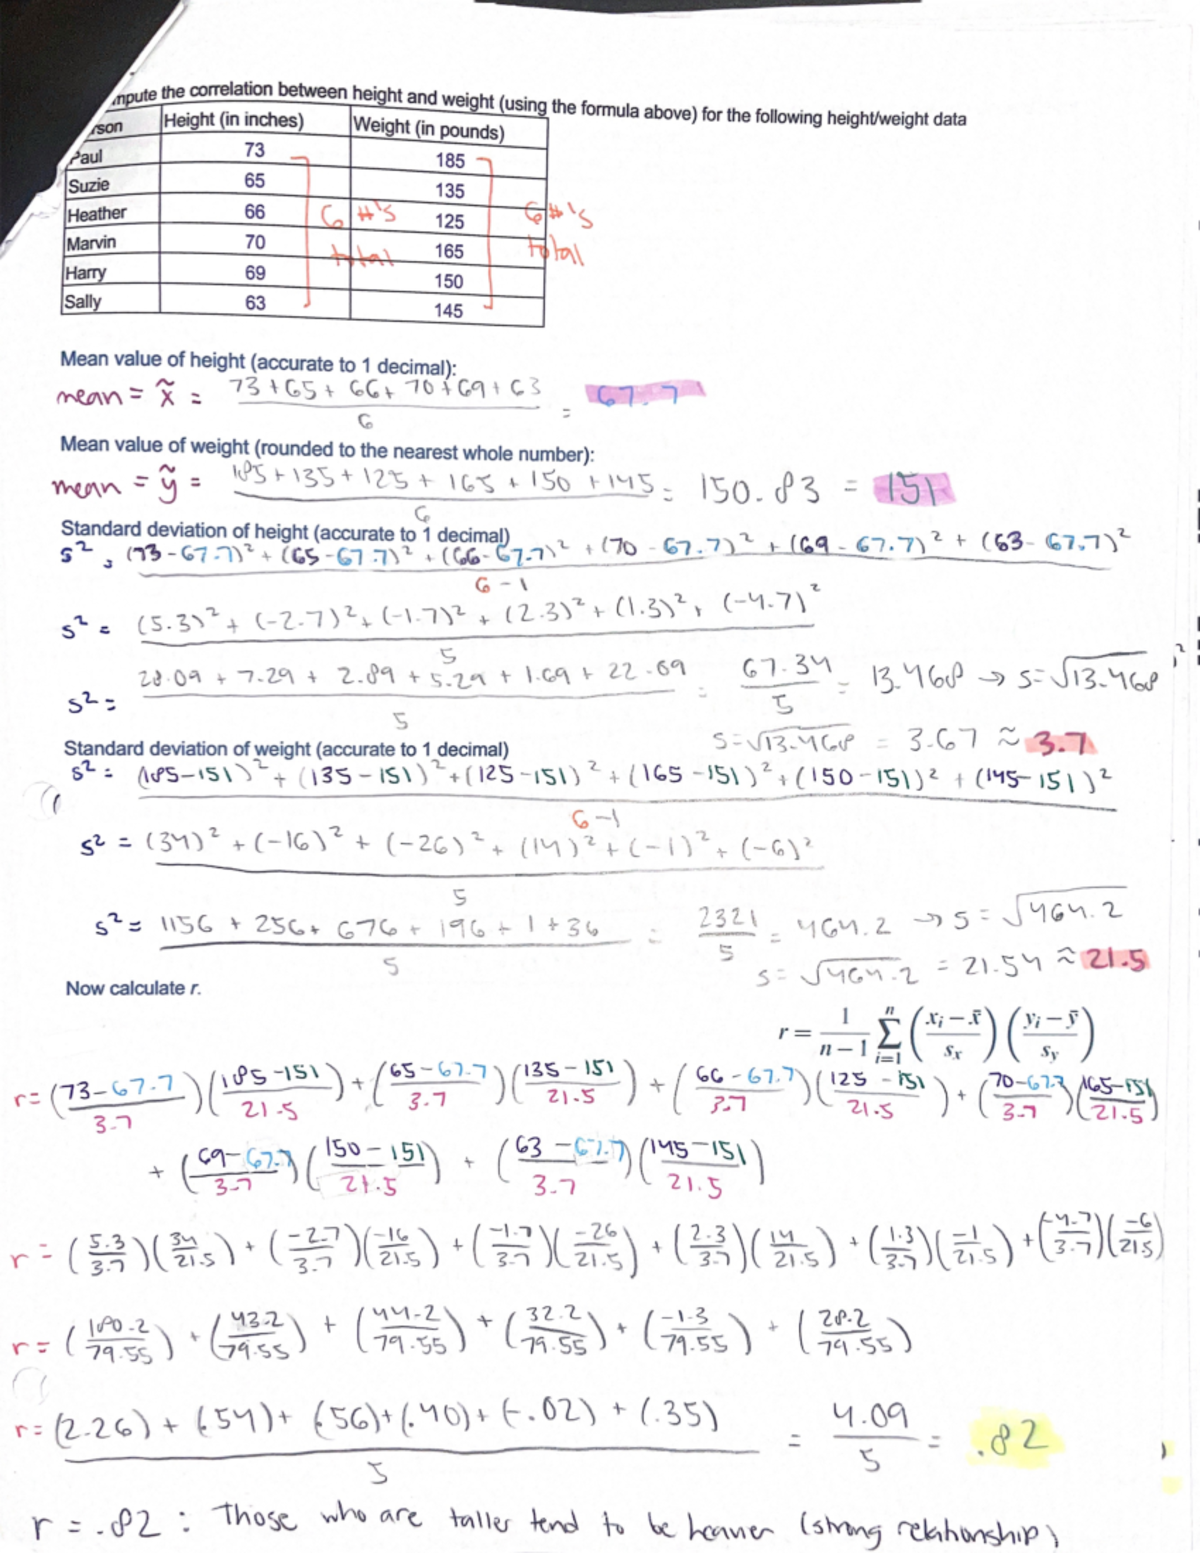 mpute the correlation between height and weight (using the formula above) for the following height/weight data
rson Height (in inches) Weight (in pounds)
Paul 73 185
Suzie 65 135
Heather 66 125
Marvin 70 165
Harry 69 150
Sally 63 145
6 #'s total
6 #'s total
Mean value of height (accurate to 1 decimal):
mean = x̃ = (73+65+66+70+69+63)/6 = 67.7
Mean value of weight (rounded to the nearest whole number):
mean = ỹ = (185+135+125+165+150+145)/6 = 150.83 = 151
Standard deviation of height (accurate to 1 decimal)
s² = ((73-67.7)² + (65-67.7)² + (66-67.7)² + (70-67.7)² + (69-67.7)² + (63-67.7)²)/(6-1)
s² = ((5.3)² + (-2.7)² + (-1.7)² + (2.3)² + (1.3)² + (-4.7)²)/5
s² = (28.09 + 7.29 + 2.89 + 5.29 + 1.69 + 22.09)/5 = 67.34/5 = 13.468 → s=√13.468
s=√13.468 = 3.67 ≈ 3.7
Standard deviation of weight (accurate to 1 decimal)
s² = ((185-151)² + (135-151)² + (125-151)² + (165-151)² + (150-151)² + (145-151)²)/(6-1)
s² = ((34)² + (-16)² + (-26)² + (14)² + (-1)² + (-6)²)/5
s² = (1156 + 256 + 676 + 196 + 1 + 36)/5 = 2321/5 = 464.2 → s = √464.2
s = √464.2 = 21.54 ≈ 21.5
Now calculate r.
r = 1/(n-1) Σ i=1 n ((xᵢ - x̄)/sₓ)((yᵢ - ȳ)/s_y)
r = ((73-67.7)/3.7)((185-151)/21.5) + ((65-67.7)/3.7)((135-151)/21.5) + ((66-67.7)/3.7)((125-151)/21.5) + ((70-67.7)/3.7)((165-151)/21.5)
+ ((69-67.7)/3.7)((150-151)/21.5) + ((63-67.7)/3.7)((145-151)/21.5)
r = (5.3/3.7)(34/21.5) + (-2.7/3.7)(-16/21.5) + (-1.7/3.7)(-26/21.5) + (2.3/3.7)(14/21.5) + (1.3/3.7)(-1/21.5) + (-4.7/3.7)(-6/21.5)
r = (180.2/79.55) + (43.2/79.55) + (44.2/79.55) + (32.2/79.55) + (-1.3/79.55) + (28.2/79.55)
r = ((2.26) + (.54) + (.56) + (.40) + (-.02) + (.35))/5 = 4.09/5 = .82
r = .82 : Those who are taller tend to be heavier (strong relationship)